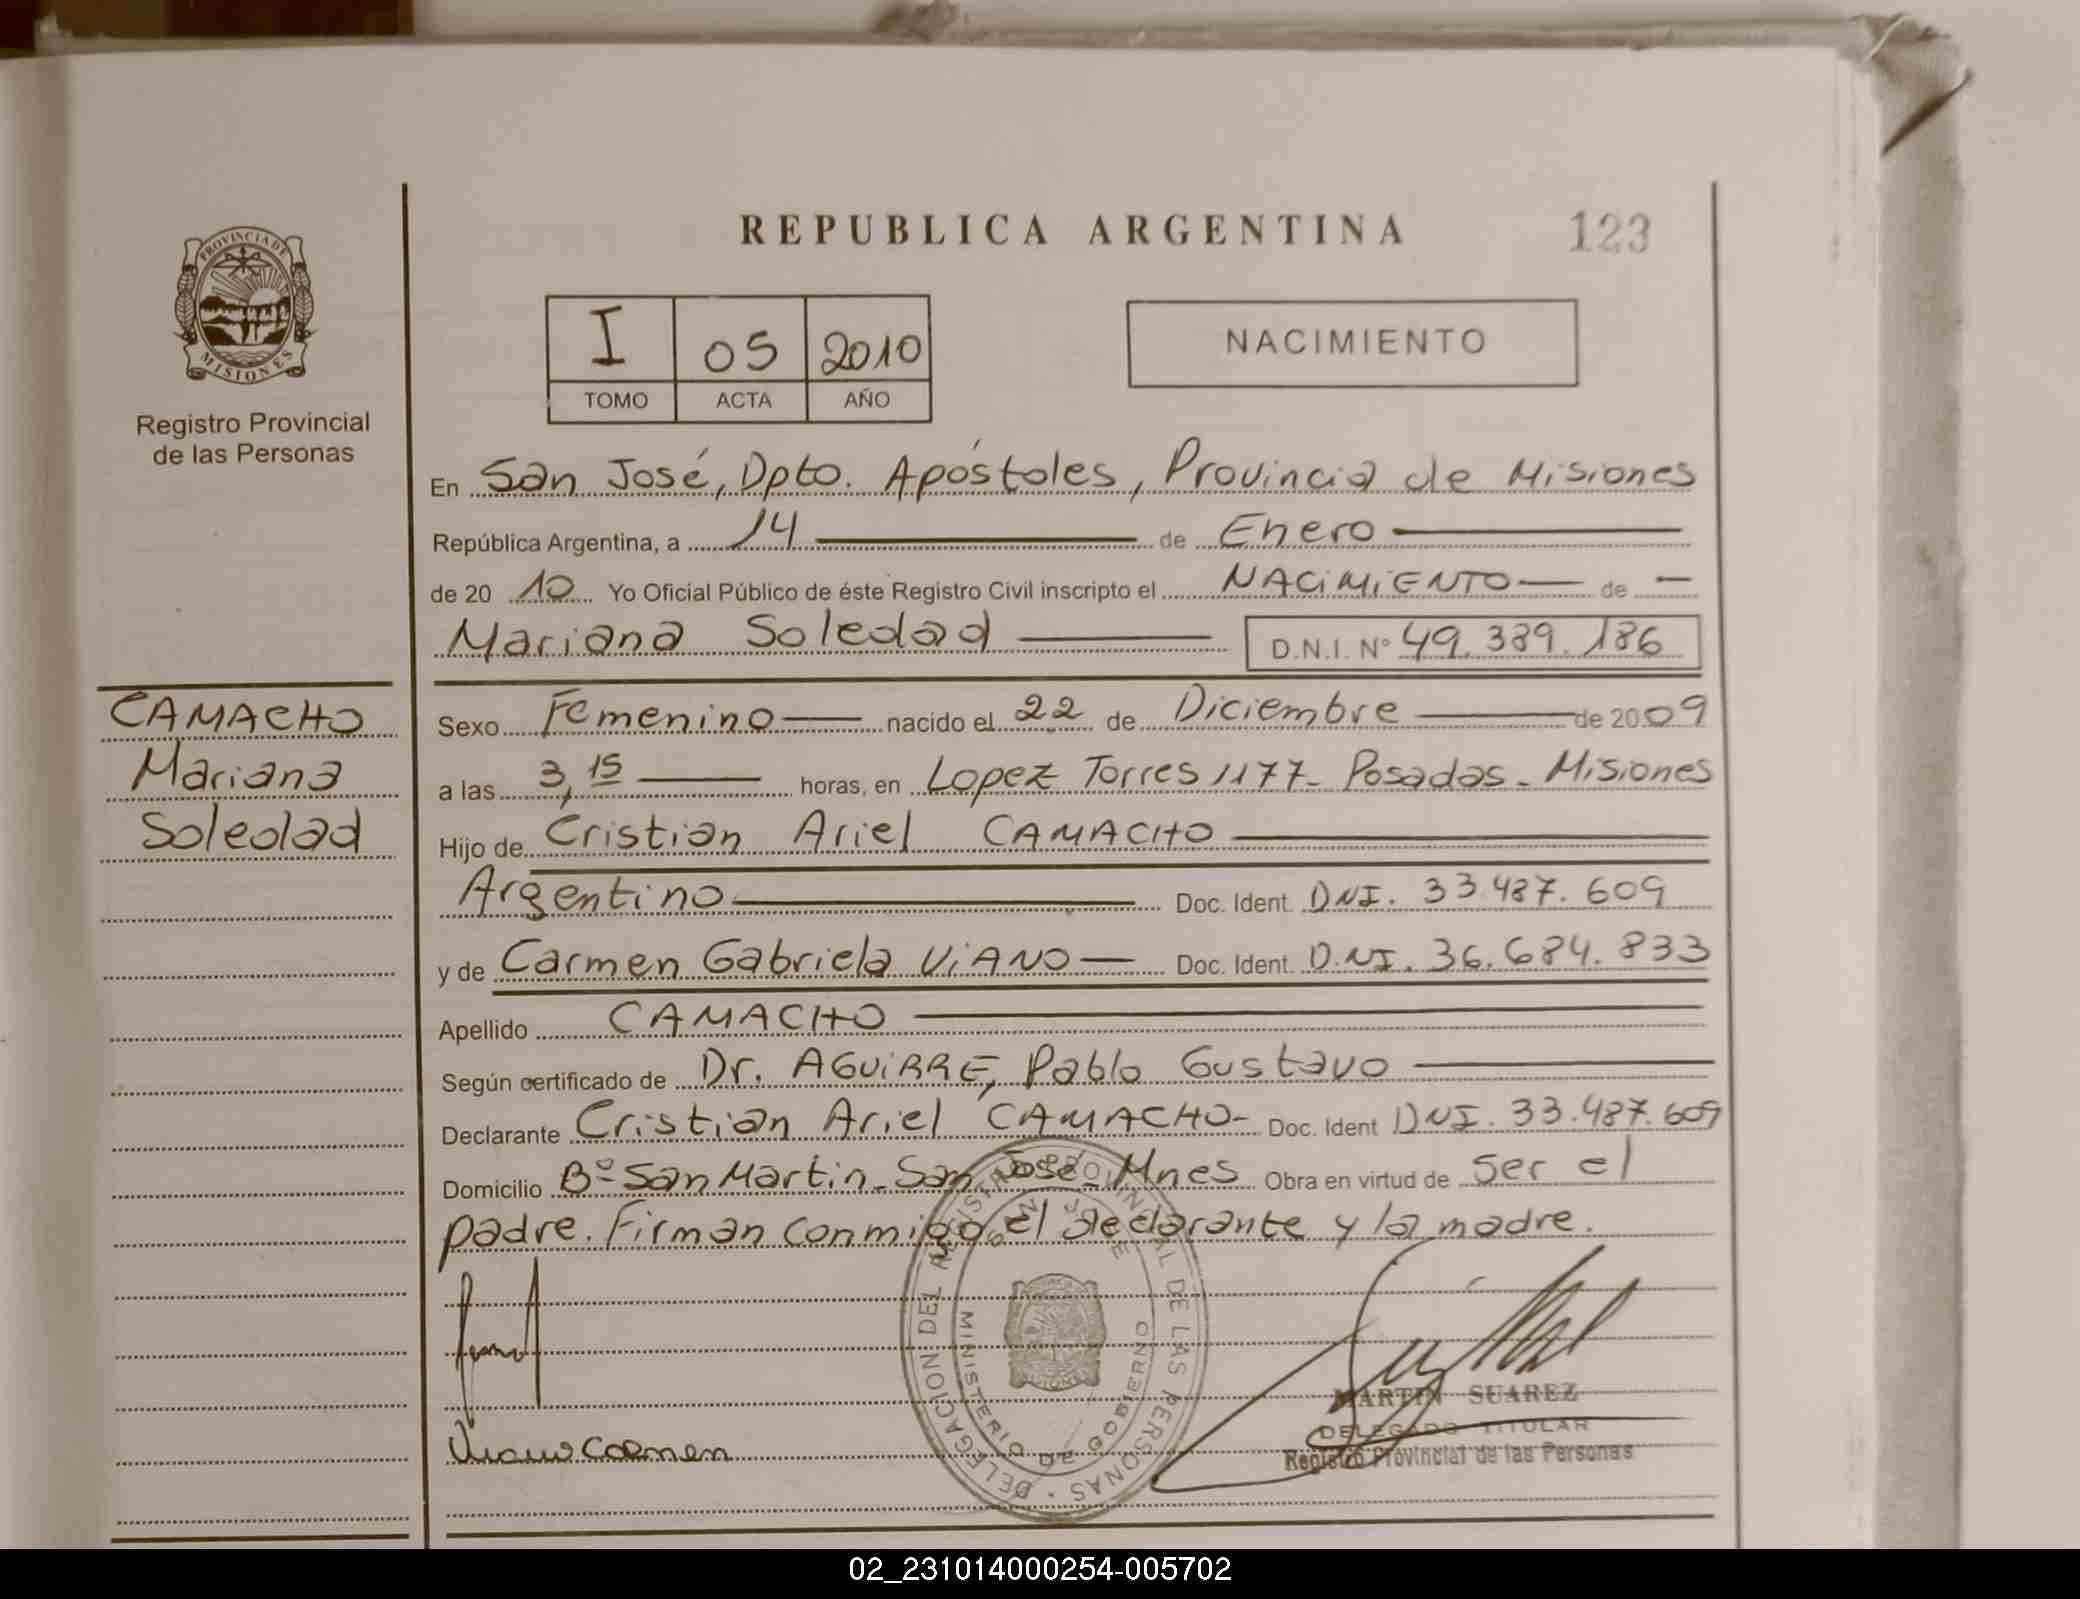 REPUBLICA ARGENTINA 123
PROVINCIA DE
MISIONES
Registro Provincial
de las Personas
I 05 2010
TOMO ACTA AÑO
NACIMIENTO
En San José, Dpto. Apóstoles, Provincia de Misiones
República Argentina, a 14 de Enero
de 20 10 Yo Oficial Público de éste Registro Civil inscripto el NACIMIENTO de
Mariana Soledad D.N.I. Nº 49.389.186
CAMACHO
Mariana
Soledad
Sexo Femenino nacido el 22 de Diciembre de 2009
a las 3,15 horas, en Lopez Torres 1177- Posadas - Misiones
Hijo de Cristian Ariel CAMACHO
Argentino Doc. Ident. DNI. 33.487.609
y de Carmen Gabriela ViANO Doc. Ident. D.NI. 36.684.833
Apellido CAMACHO
Según certificado de Dr. AGUiRRE, Pablo Gustavo
Declarante Cristian Ariel CAMACHO- Doc. Ident DNI. 33.487.609
Domicilio Bº San Martin - San Jose - Mnes Obra en virtud de ser el
padre. Firman conmigo el declarante y la madre.
DELEGACION DEL REGISTRO PROVINCIAL DE LAS PERSONAS
MINISTERIO DE GOBIERNO
MARTIN SUAREZ
DELEGADO TITULAR
Registro Provincial de las Personas
Viano Carmen
02_231014000254-005702